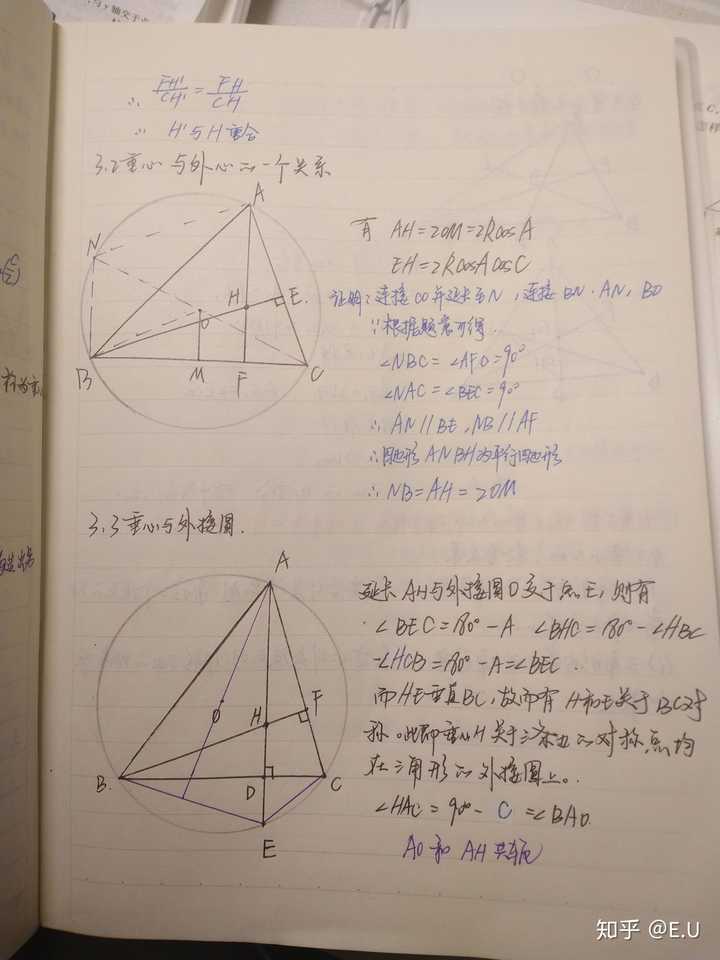 与y轴交于
∴ FH'/CH' = FH/CH
∴ H'与H重合
3.2 重心与外心的一个关系
A
N
H
E.
O
B
M
F
C
有 AH=2OM=2RcosA
EH=2RcosAcosC
证明：连接CO并延长至N，连接BN、AN，BO
∵根据题意可得..
∠NBC=∠AFO=90°
∠NAC=∠BEC=90°
∴ AN//BE，NB//AF
∴四边形ANBH为平行四边形
∴ NB=AH=2OM
3.3 垂心与外接圆.
A
O
H
F
B
D
C
E
延长AH与外接圆O交于点E，则有
∠BEC=180°-A ∠BHC=180°-∠HBC
-∠HCB=180°-A=∠BEC.
而HE垂直BC，故而有H和E关于BC对
称。此即垂心H关于三条边的对称点均
在三角形的外接圆上。
∠HAC=90°-C=∠BAO.
AO和AH共轭
知乎 @E.U